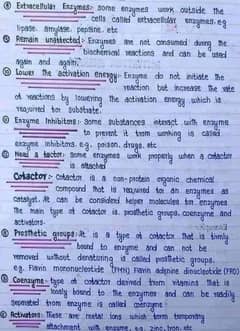 ⑧ Extracellular Enzymes:- some enzymes work outside the
cells called extracellular enzymes. e.g
lipase, amylase, pepsine, etc
⑨ Remain unaffected:- Enzymes are not consumed during the
biochemical reactions and can be used
again and again.
⑩ Lower the activation energy:- Enzyme do not initiate the
reaction but increase the rate
of reactions by lowering the activation energy which is
required to substrate.
Enzyme Inhibitors:- Some substances interact with enzyme
to prevent it from working is called
enzyme inhibitors. e.g. poison, drugs, etc
Need a factor:- Some enzymes work properly when a cofactor
is attached
Cofactor:- Cofactor is a non-protein organic, chemical
compound that is required to an enzymes as
catalyst. It can be considered helper molecules to enzymes
The main type of cofactor is prosthetic groups, coenzyme and
activators.
Ⓐ Prosthetic groups:- It is a type of cofactor that is firmly
bound to enzyme and can not be
removed without denaturing is called prosthetic groups.
e.g. Flavin mononucleotide (FMN) Flavin adenine dinucleotide (FAD)
Ⓑ Coenzyme:- type of cofactor derived from vitamins that is
loosely bound to the enzymes and can be readily
separated from enzyme is called coenzyme.
Ⓒ Activators:- These are metal ions which form temporary
attachment with enzyme. e.g. zinc, iron etc